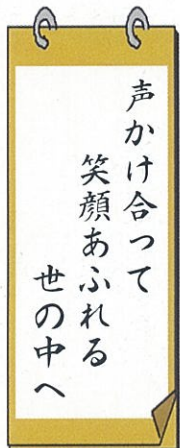 声かけ合って
笑顔あふれる
世の中へ